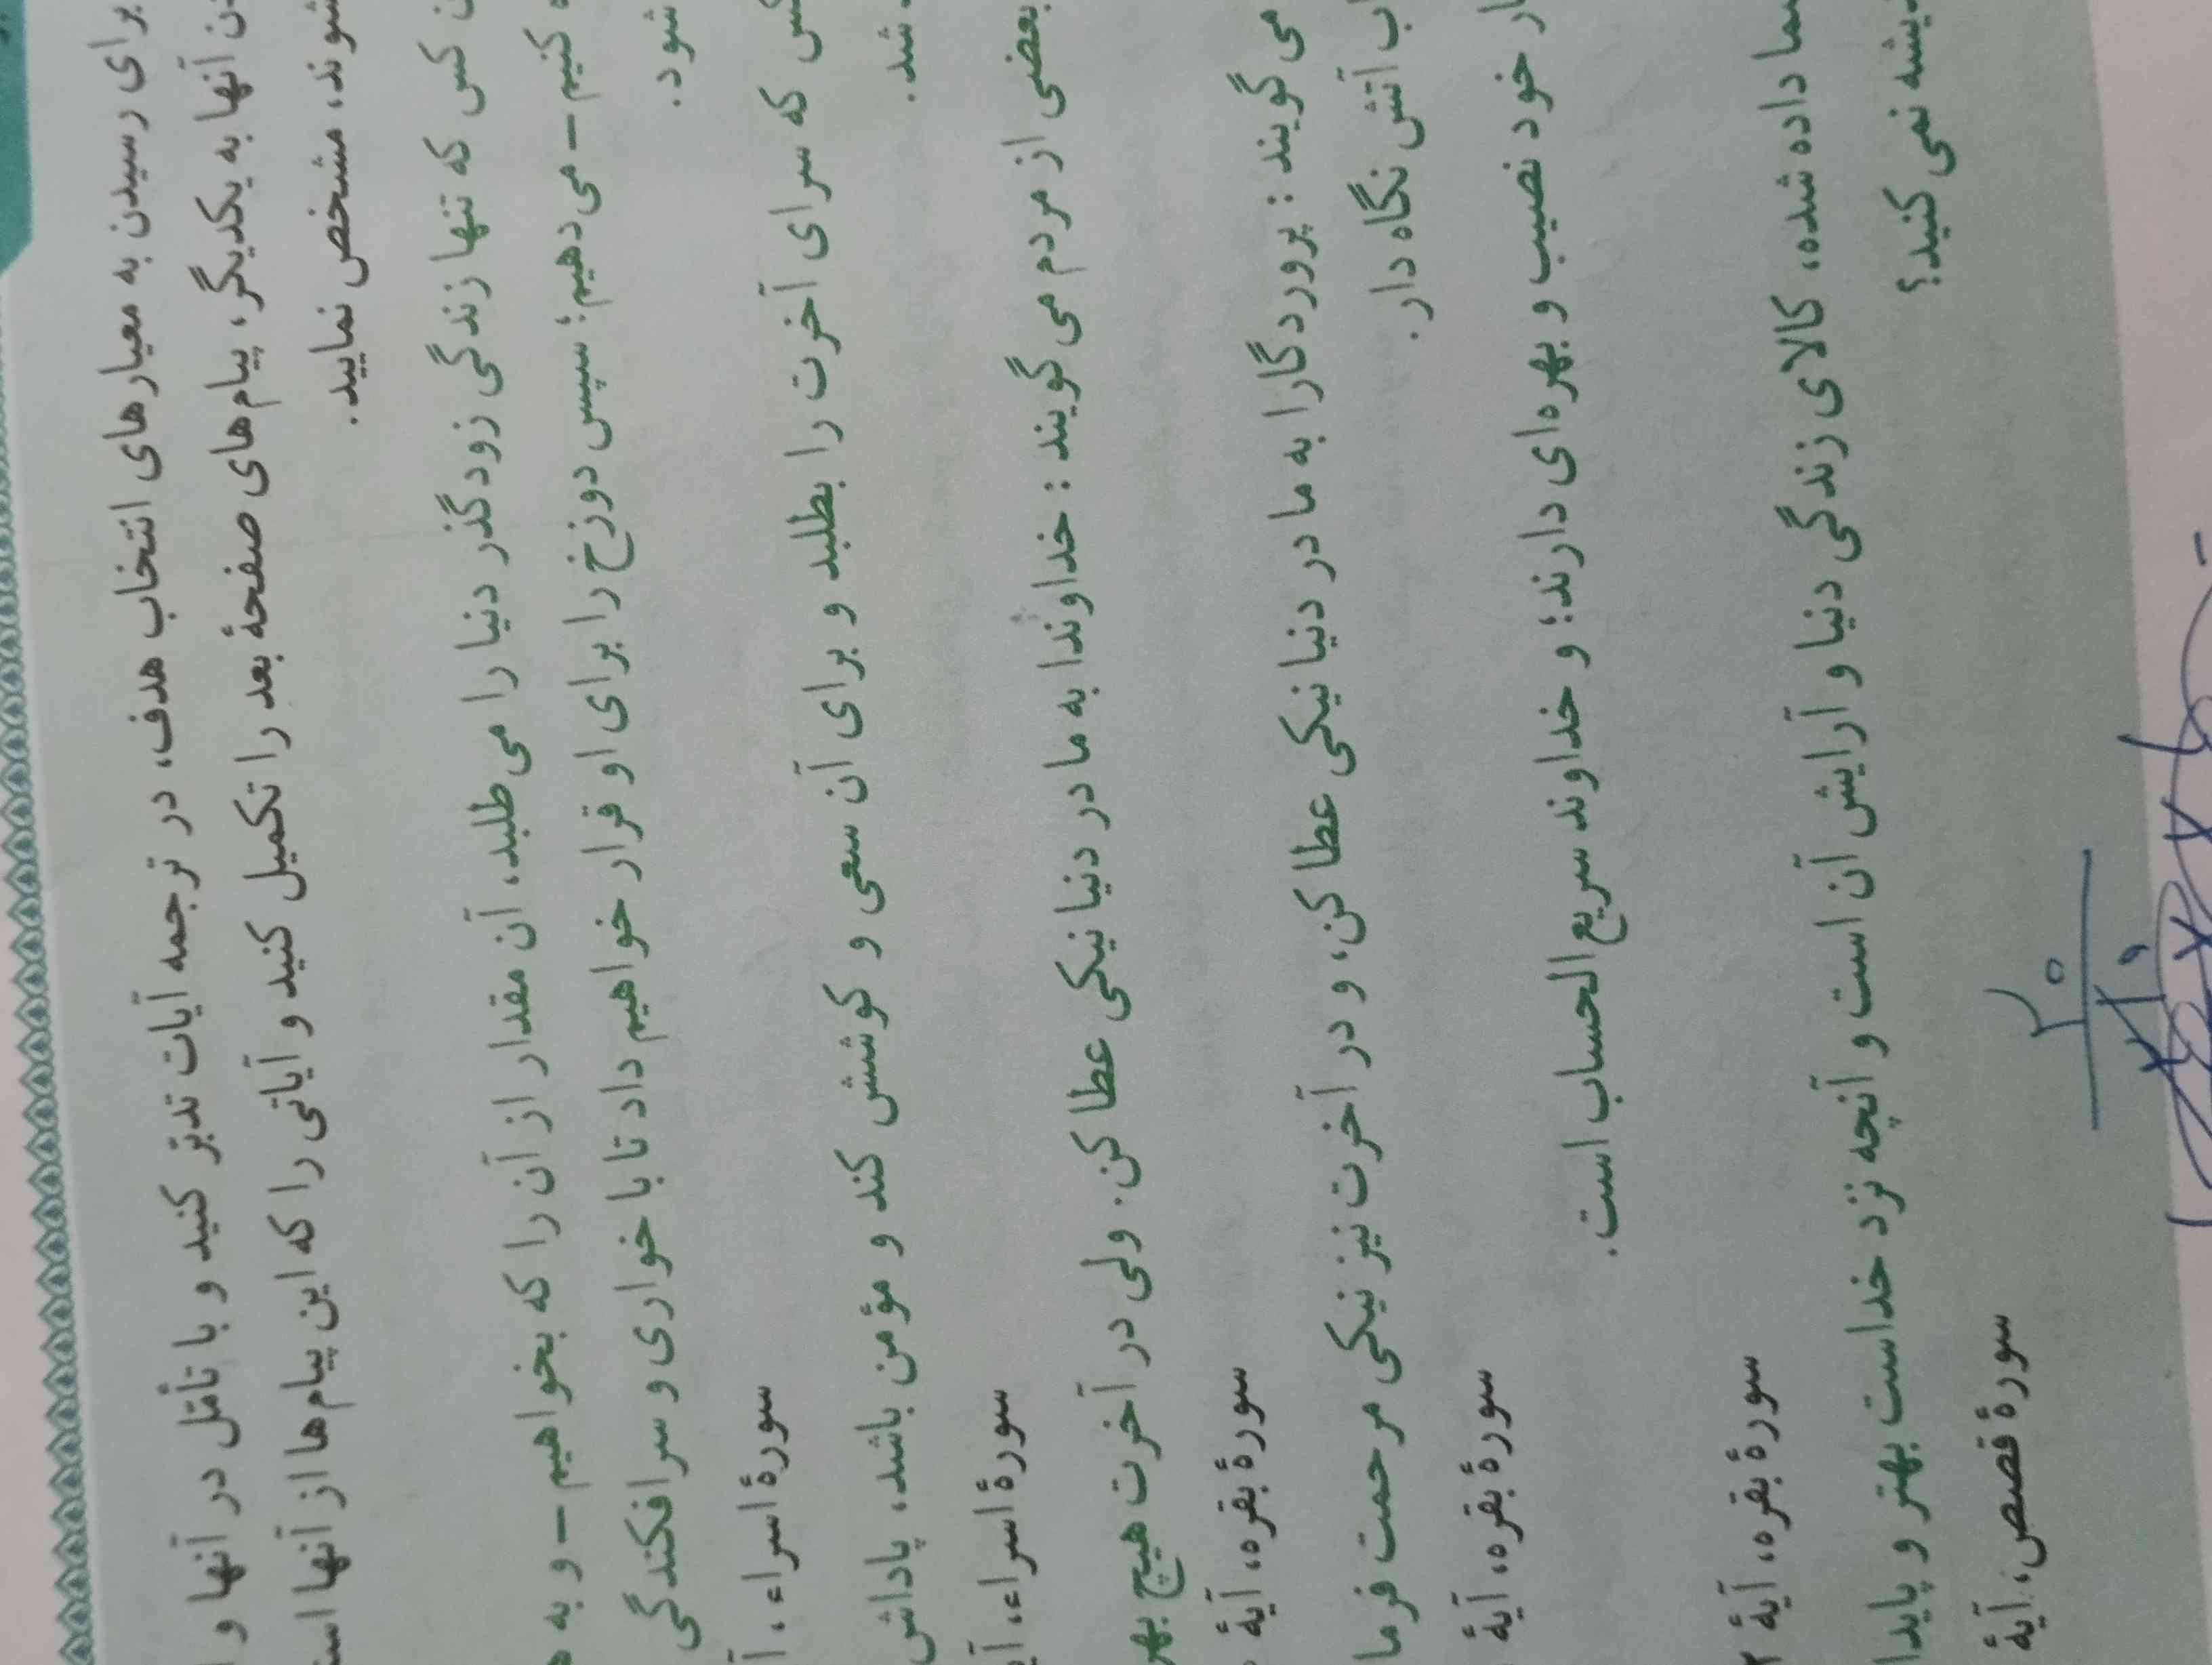 برای رسیدن به معیارهای انتخاب هدف، در ترجمه آیات تدبّر کنید و با تأمّل در آنها و
آنها به یکدیگر، پیام‌های صفحهٔ بعد را تکمیل کنید و آیاتی را که این پیام‌ها از آنها
شوند، مشخص نمایید.
کس که تنها زندگی زودگذر دنیا را می‌طلبد، آن مقدار از آن را که بخواهیم – و به
کنیم – می‌دهیم؛ سپس دوزخ را برای او قرار خواهیم داد تا با خواری و سرافکندگی
شود.
سورهٔ اسراء،
که سرای آخرت را بطلبد و برای آن سعی و کوشش کند و مؤمن باشد، پاداش
شد.
سورهٔ اسراء،
بعضی از مردم می‌گویند: خداوندا به ما در دنیا نیکی عطا کن. ولی در آخرت هیچ
سورهٔ بقره، آیهٔ
می‌گویند: پروردگارا به ما در دنیا نیکی عطا کن، و در آخرت نیز نیکی مرحمت فرما
آتش نگاه دار.
سورهٔ بقره، آیهٔ
خود نصیب و بهره‌ای دارند؛ و خداوند سریع‌الحساب است.
سورهٔ بقره، آیهٔ ۲
داده شده، کالای زندگی دنیا و آرایش آن است و آنچه نزد خداست بهتر و
نمی‌کنید؟
سورهٔ قصص، آیهٔ
۲۰